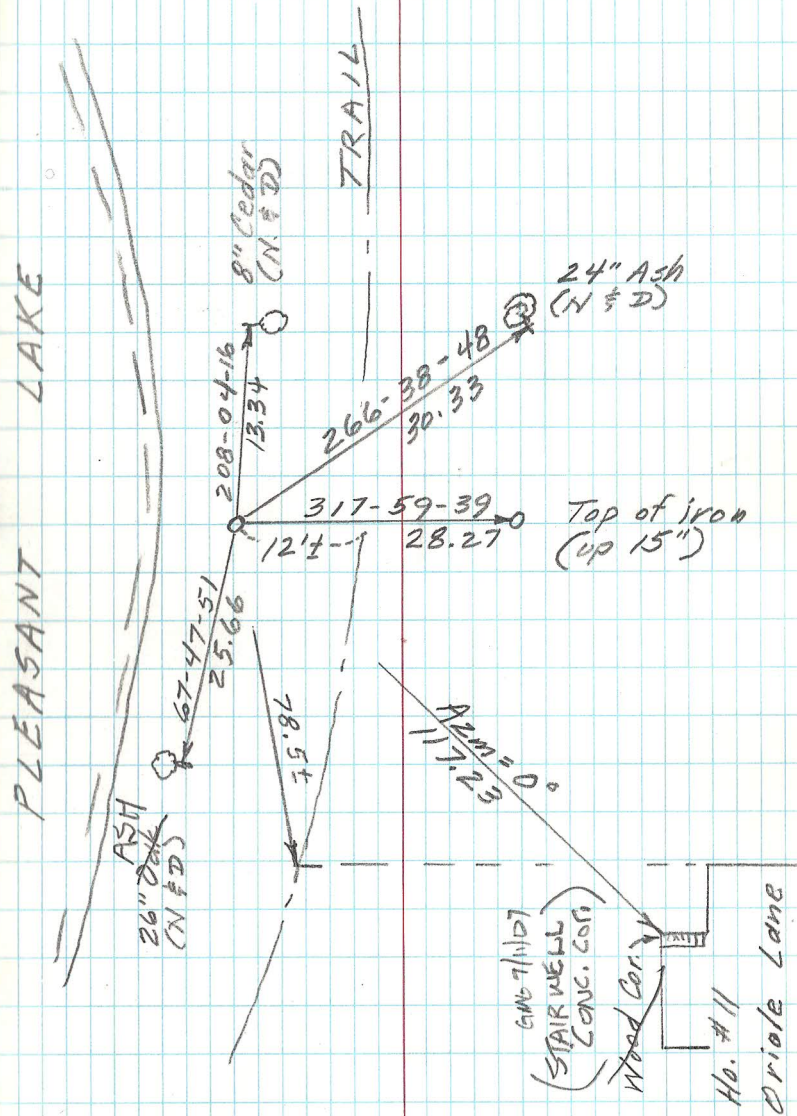 PLEASANT LAKE
TRAIL
8" Cedar
(N. & D)
208-04-16
13.34
24" Ash
(N & D)
266-38-48
30.33
317-59-39
28.27
12'±
Top of iron
(up 15")
67-47-51
25.66
78.57
ASH
26" Oak
(N & D)
Azm "0°
117.23
9/11/07
(STAIRWELL
CONC. Cor.)
Wood Cor.
Ho. #11
Oriole Lane